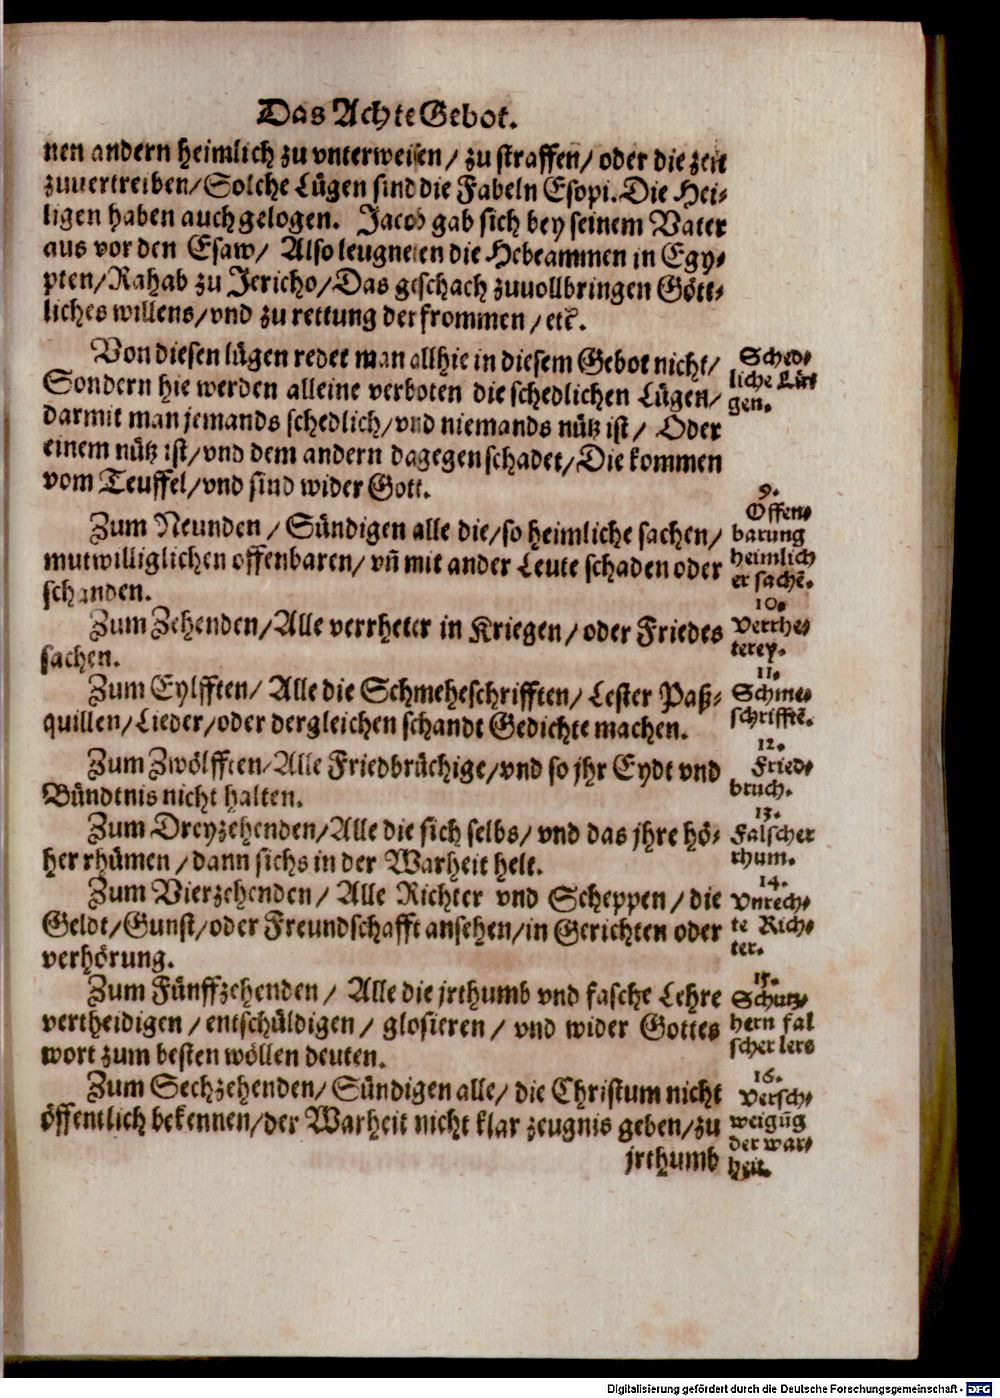 Das Achte Gebot.
nen andern heimlich zu vnterweisen/ zu straffen/ oder die zeit
zuuertreiben/Solche Lügen sind die Fabeln Esopi.Die Hei-
ligen haben auch gelogen. Jacob gab sich bey seinem Vater
aus vor den Esaw/ Also leugneten die Hebeammen in Egy-
pten/Rahab zu Jericho/Das geschach zuuollbringen Gött-
liches willens/vnd zu rettung der frommen/etc.
Von diesen lügen redet man allhie in diesem Gebot nicht/
Sondern hie werden alleine verboten die schedlichen Lügen/
darmit man jemands schedlich/vnd niemands nütz ist/ Oder
einem nütz ist/vnd dem andern dagegen schadet/Die kommen
vom Teuffel/vnd sind wider Gott.
Sched-
liche Lü-
gen.
Zum Neunden/ Sündigen alle die/so heimliche sachen/
mutwilliglichen offenbaren/ vñ mit ander Leute schaden oder
schanden.
9.
Offen-
barung
heimlich
er sachẽ.
Zum Zehenden/Alle verrheter in Kriegen/oder Friedes
sachen.
10.
Verrhe-
terey.
Zum Eylfften/ Alle die Schmeheschrifften/ Lester Paß-
quillen/Lieder/oder dergleichen schandt Gedichte machen.
11.
Schme-
schrifftẽ.
Zum Zwölfften/Alle Friedbrüchige/vnd so jhr Eydt vnd
Bündtnis nicht halten.
12.
Fried-
bruch.
Zum Dreyzehenden/Alle die sich selbs/ vnd das jhre hö-
her rhümen/dann sichs in der Warheit helt.
13.
Falscher
rhum.
Zum Vierzehenden/ Alle Richter vnd Scheppen/die
Geldt/Gunst/oder Freundschafft ansehen/in Gerichten oder
verhörung.
14.
Vnrech-
te Rich-
ter.
Zum Fünffzehenden/ Alle die jrthumb vnd fasche Lehre
vertheidigen/entschüldigen/ glosieren/ vnd wider Gottes
wort zum besten wöllen deuten.
15.
Schutz-
hern fal
scher lere
Zum Sechzehenden/ Sündigen alle/ die Christum nicht
öffentlich bekennen/der Warheit nicht klar zeugnis geben/zu
jrthumb
16.
Versch-
weigũg
der war-
heit.
Digitalisierung gefördert durch die Deutsche Forschungsgemeinschaft - DFG